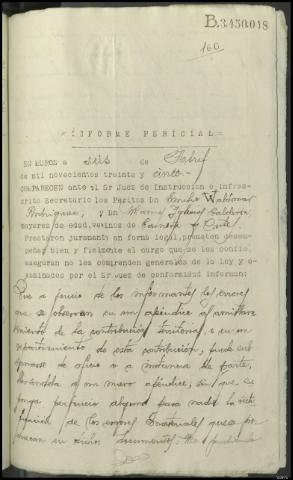 B.3450.048
160
=INFORME PERICIAL=
EN MUROS a seis de Abril
de mil novecientos treinta y cinco.-
COMPARECEN ante el Sr Juez de Instruccion e infras-
crito Secretario los Peritos Dn Emilio
Rodriguez, y Dn Calderon
mayores de edad, vecinos de
Prestaron juramento en forma legal, prometen desem-
peñar bien y fielmente el cargo que se les confie,
aseguran no les comprenden generales de la Ley y e-
xaminados por el Sr Juez de conformidad informan:
Que a juicio de los informantes los errores
que se observan en un apéndice al amillara-
miento de la contribución territorial, o en un
repartimiento de esta contribución, puede sub-
sanarse de oficio o a instancia de parte,
llevandola a un nuevo apéndice, sin que se
ponga perjuicio alguno para nadie la
de los errores materiales que se
en dichos documentos.